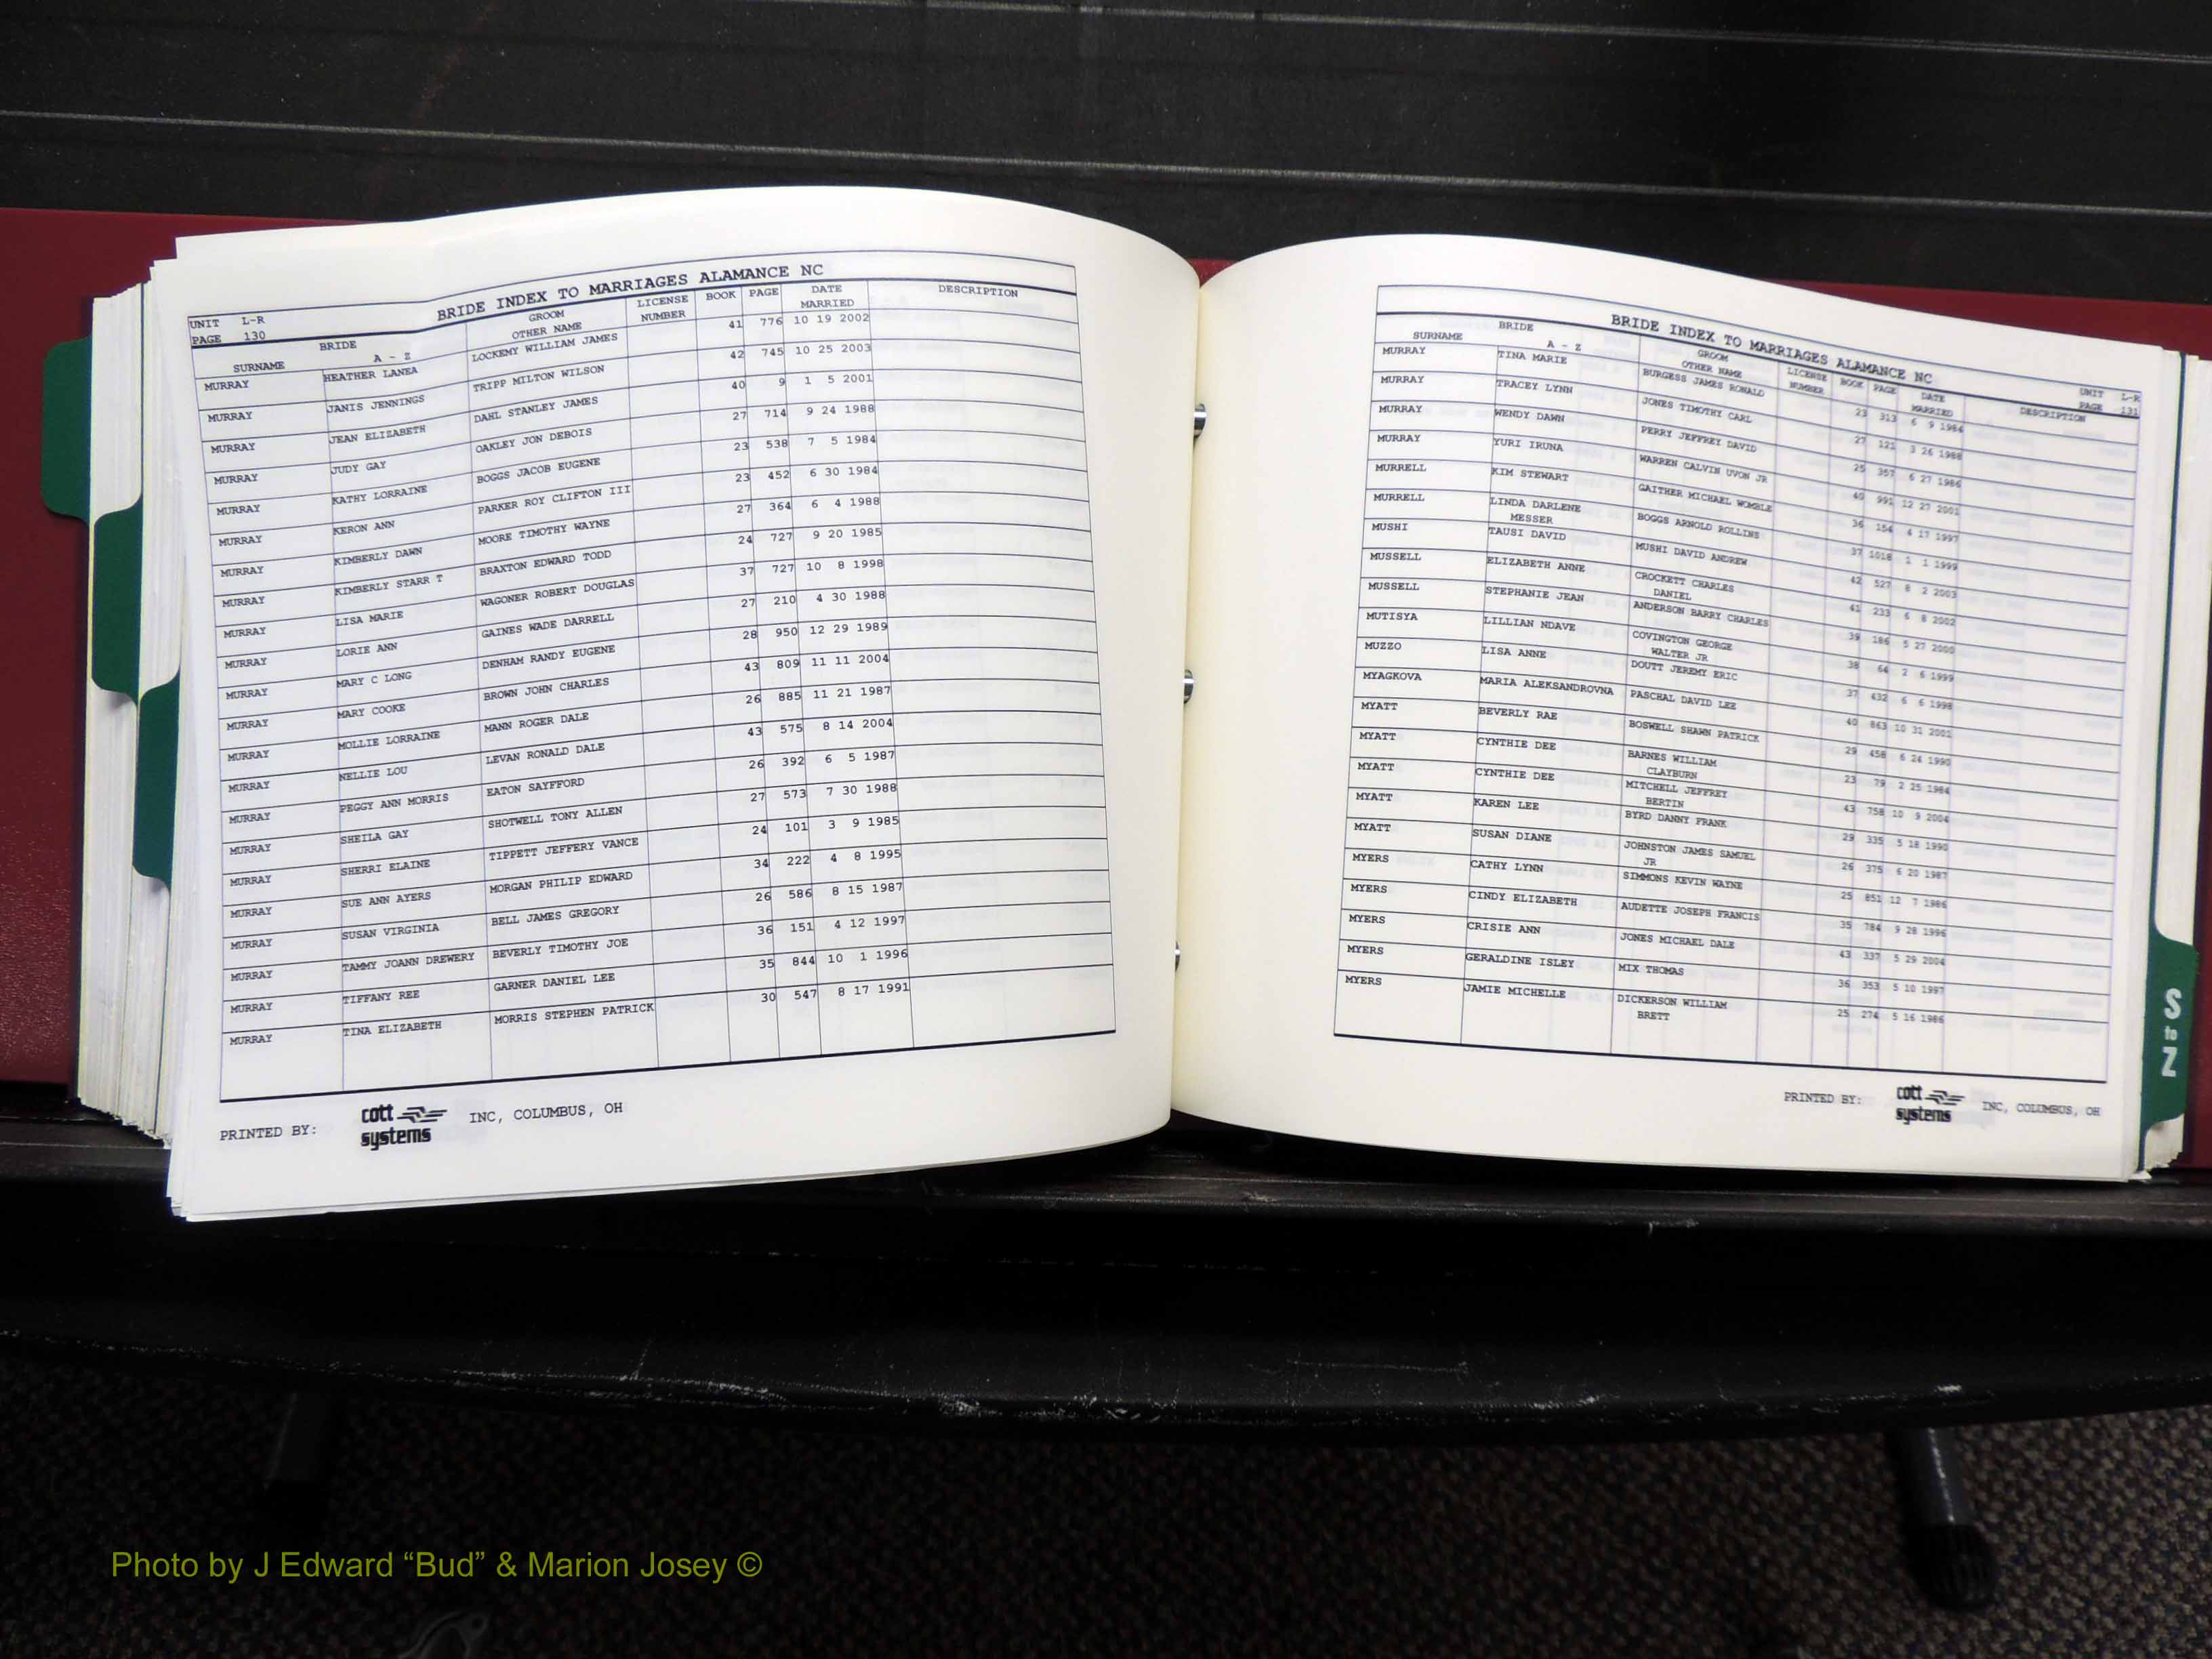 BRIDE INDEX TO MARRIAGES ALAMANCE NC
UNIT L-R
PAGE 130
BRIDE GROOM LICENSE BOOK PAGE DATE DESCRIPTION
SURNAME A - Z OTHER NAME NUMBER MARRIED
MURRAY HEATHER LANEA LOCKEMY WILLIAM JAMES 41 776 10 19 2002
MURRAY JANIS JENNINGS TRIPP MILTON WILSON 42 745 10 25 2003
MURRAY JEAN ELIZABETH DAHL STANLEY JAMES 40 9 1 5 2001
MURRAY JUDY GAY OAKLEY JON DEBOIS 27 714 9 24 1988
MURRAY KATHY LORRAINE BOGGS JACOB EUGENE 23 538 7 5 1984
MURRAY KERON ANN PARKER ROY CLIFTON III 23 452 6 30 1984
MURRAY KIMBERLY DAWN MOORE TIMOTHY WAYNE 27 364 6 4 1988
MURRAY KIMBERLY STARR T BRAXTON EDWARD TODD 24 727 9 20 1985
MURRAY LISA MARIE WAGONER ROBERT DOUGLAS 37 727 10 8 1998
MURRAY LORIE ANN GAINES WADE DARRELL 27 210 4 30 1988
MURRAY MARY C LONG DENHAM RANDY EUGENE 28 950 12 29 1989
MURRAY MARY COOKE BROWN JOHN CHARLES 43 809 11 11 2004
MURRAY MOLLIE LORRAINE MANN ROGER DALE 26 885 11 21 1987
MURRAY NELLIE LOU LEVAN RONALD DALE 43 575 8 14 2004
MURRAY PEGGY ANN MORRIS EATON SAYFFORD 26 392 6 5 1987
MURRAY SHEILA GAY SHOTWELL TONY ALLEN 27 573 7 30 1988
MURRAY SHERRI ELAINE TIPPETT JEFFERY VANCE 24 101 3 9 1985
MURRAY SUE ANN AYERS MORGAN PHILIP EDWARD 34 222 4 8 1995
MURRAY SUSAN VIRGINIA BELL JAMES GREGORY 26 586 8 15 1987
MURRAY TAMMY JOANN DREWERY BEVERLY TIMOTHY JOE 36 151 4 12 1997
MURRAY TIFFANY REE GARNER DANIEL LEE 35 844 10 1 1996
MURRAY TINA ELIZABETH MORRIS STEPHEN PATRICK 30 547 8 17 1991
PRINTED BY: cott systems INC, COLUMBUS, OH
BRIDE INDEX TO MARRIAGES ALAMANCE NC
UNIT L-R
PAGE 131
BRIDE GROOM LICENSE BOOK PAGE DATE DESCRIPTION
SURNAME A - Z OTHER NAME NUMBER MARRIED
MURRAY TINA MARIE BURGESS JAMES RONALD 23 313 6 9 1984
MURRAY TRACEY LYNN JONES TIMOTHY CARL 27 121 3 26 1988
MURRAY WENDY DAWN PERRY JEFFREY DAVID 25 357 6 27 1986
MURRAY YURI IRUNA WARREN CALVIN UVON JR 40 991 12 27 2001
MURRELL KIM STEWART GAITHER MICHAEL WOMBLE 36 154 4 17 1997
MURRELL LINDA DARLENE BOGGS ARNOLD ROLLINS 37 1018 1 1 1999
MESSER
MUSHI TAUSI DAVID MUSHI DAVID ANDREW 42 527 8 2 2003
MUSSELL ELIZABETH ANNE CROCKETT CHARLES 41 233 6 8 2002
DANIEL
MUSSELL STEPHANIE JEAN ANDERSON BARRY CHARLES 39 186 5 27 2000
MUTISYA LILLIAN NDAVE COVINGTON GEORGE 38 64 2 6 1999
WALTER JR
MUZZO LISA ANNE DOUTT JEREMY ERIC 37 432 6 6 1998
MYAGKOVA MARIA ALEKSANDROVNA PASCHAL DAVID LEE 40 863 10 31 2001
MYATT BEVERLY RAE BOSWELL SHAWN PATRICK 29 458 6 24 1990
MYATT CYNTHIE DEE BARNES WILLIAM 23 79 2 25 1984
CLAYBURN
MYATT CYNTHIE DEE MITCHELL JEFFREY 43 758 10 9 2004
BERTIN
MYATT KAREN LEE BYRD DANNY FRANK 29 335 5 18 1990
MYATT SUSAN DIANE JOHNSTON JAMES SAMUEL 26 375 6 20 1987
JR
MYERS CATHY LYNN SIMMONS KEVIN WAYNE 25 851 12 7 1986
MYERS CINDY ELIZABETH AUDETTE JOSEPH FRANCIS 35 784 9 28 1996
MYERS CRISIE ANN JONES MICHAEL DALE 43 337 5 29 2004
MYERS GERALDINE ISLEY MIX THOMAS 36 353 5 10 1997
MYERS JAMIE MICHELLE DICKERSON WILLIAM 25 274 5 16 1986
BRETT
PRINTED BY: cott systems INC, COLUMBUS, OH
S to Z
Photo by J Edward “Bud” & Marion Josey ©